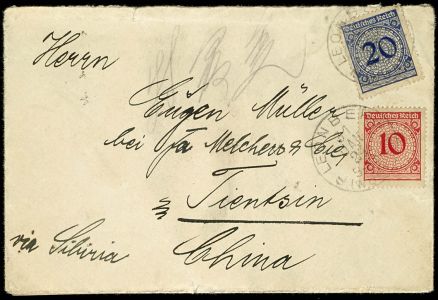 Herrn
Eugen Müller
bei Fa Melchers & Co
Tientsin
via Sibiria
China
Deutsches Reich
20
Deutsches Reich
10